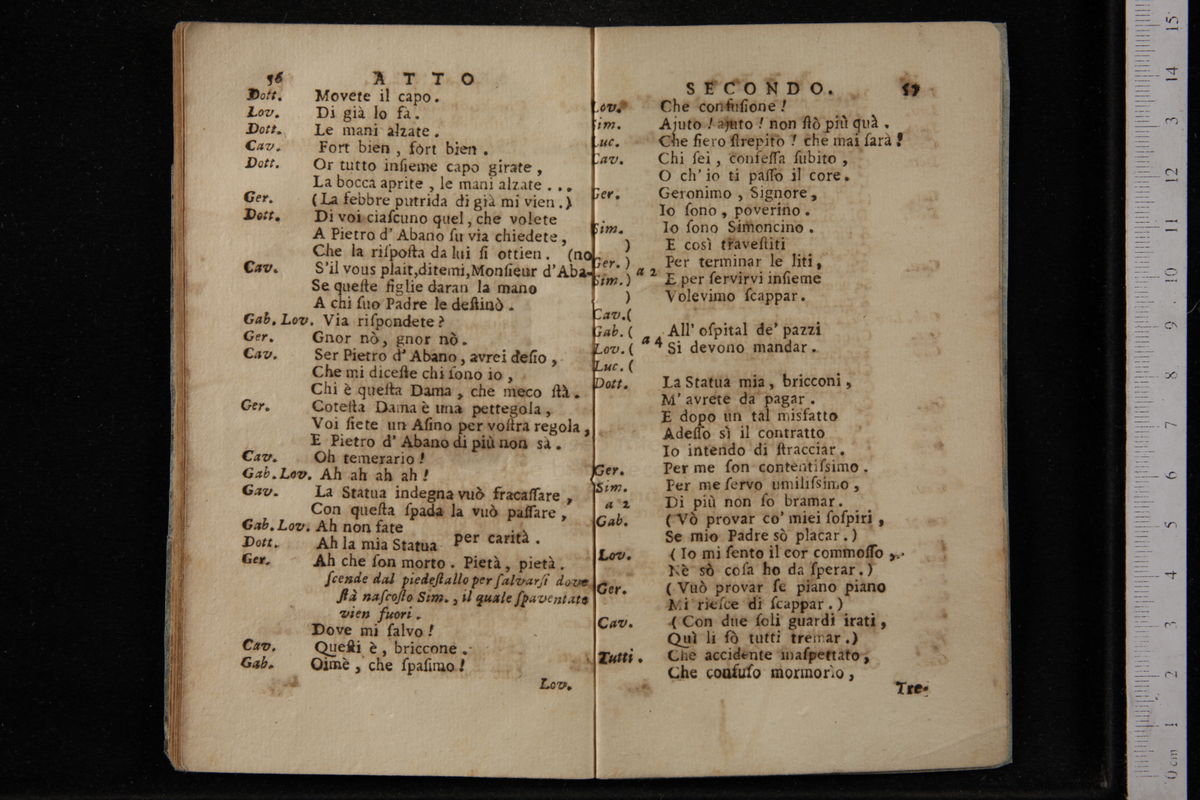 56 ATTO
Dott. Movete il capo.
Lov. Di già lo fa.
Dott. Le mani alzate.
Cav. Fort bien, fort bien.
Dott. Or tutto inſieme capo girate,
La bocca aprite, le mani alzate...
Ger. (La febbre putrida di già mi vien.)
Dott. Di voi ciaſcuno quel, che volete
A Pietro d' Abano ſu via chiedete,
Che la riſpoſta da lui ſi ottien. (no
Cav. S'il vous plait, ditemi, Monſieur d'Aba-
Se queſte figlie daran la mano
A chi ſuo Padre le deſtinò.
Gab. Lov. Via riſpondete?
Ger. Gnor nò, gnor nò.
Cav. Ser Pietro d' Abano, avrei deſio,
Che mi diceſte chi ſono io,
Chi è queſta Dama, che meco ſtà.
Ger. Coteſta Dama è una pettegola,
Voi ſiete un Aſino per voſtra regola,
E Pietro d' Abano di più non sà.
Cav. Oh temerario!
Gab. Lov. Ah ah ah ah!
Gav. La Statua indegna vuò fracaſſare,
Con queſta ſpada la vuò paſſare,
Gab. Lov. Ah non fate
Dott. Ah la mia Statua per carità.
Ger. Ah che ſon morto. Pietà, pietà.
ſcende dal piedeſtallo per ſalvarſi dove
ſtà naſcoſto Sim., il quale ſpaventato
vien fuori.
Dove mi ſalvo!
Cav. Queſti è, briccone.
Gab. Oimè, che ſpaſimo!
Lov.
SECONDO. 57
Lov. Che confuſione!
Sim. Ajuto! ajuto! non ſtò più quà.
Luc. Che fiero ſtrepito! che mai ſarà!
Cav. Chi ſei, confeſſa ſubito,
O ch' io ti paſſo il core.
Ger. Geronimo, Signore,
Io ſono, poverino.
Sim. Io ſono Simoncino.
) E così traveſtiti
Ger. ) Per terminar le liti,
Sim. ) a 2 E per ſervirvi inſieme
) Volevimo ſcappar.
Cav. (
Gab. ( All' oſpital de' pazzi
Lov. ( a 4 Si devono mandar.
Luc. (
Dott. La Statua mia, bricconi,
M' avrete da pagar.
E dopo un tal misfatto
Adeſſo sì il contratto
Io intendo di ſtracciar.
Ger. Per me ſon contentiſsimo.
Sim. Per me ſervo umiliſsimo,
a 2 Di più non ſo bramar.
Gab. (Vò provar co' miei ſoſpiri,
Se mio Padre sò placar.)
Lov. (Io mi ſento il cor commoſſo,
Nè sò coſa ho da ſperar.)
Ger. (Vuò provar ſe piano piano
Mi rieſce di ſcappar.)
Cav. (Con due ſoli guardi irati,
Quì li fò tutti tremar.)
Tutti. Che accidente inaſpettato,
Che confuſo mormorìo,
Tre-